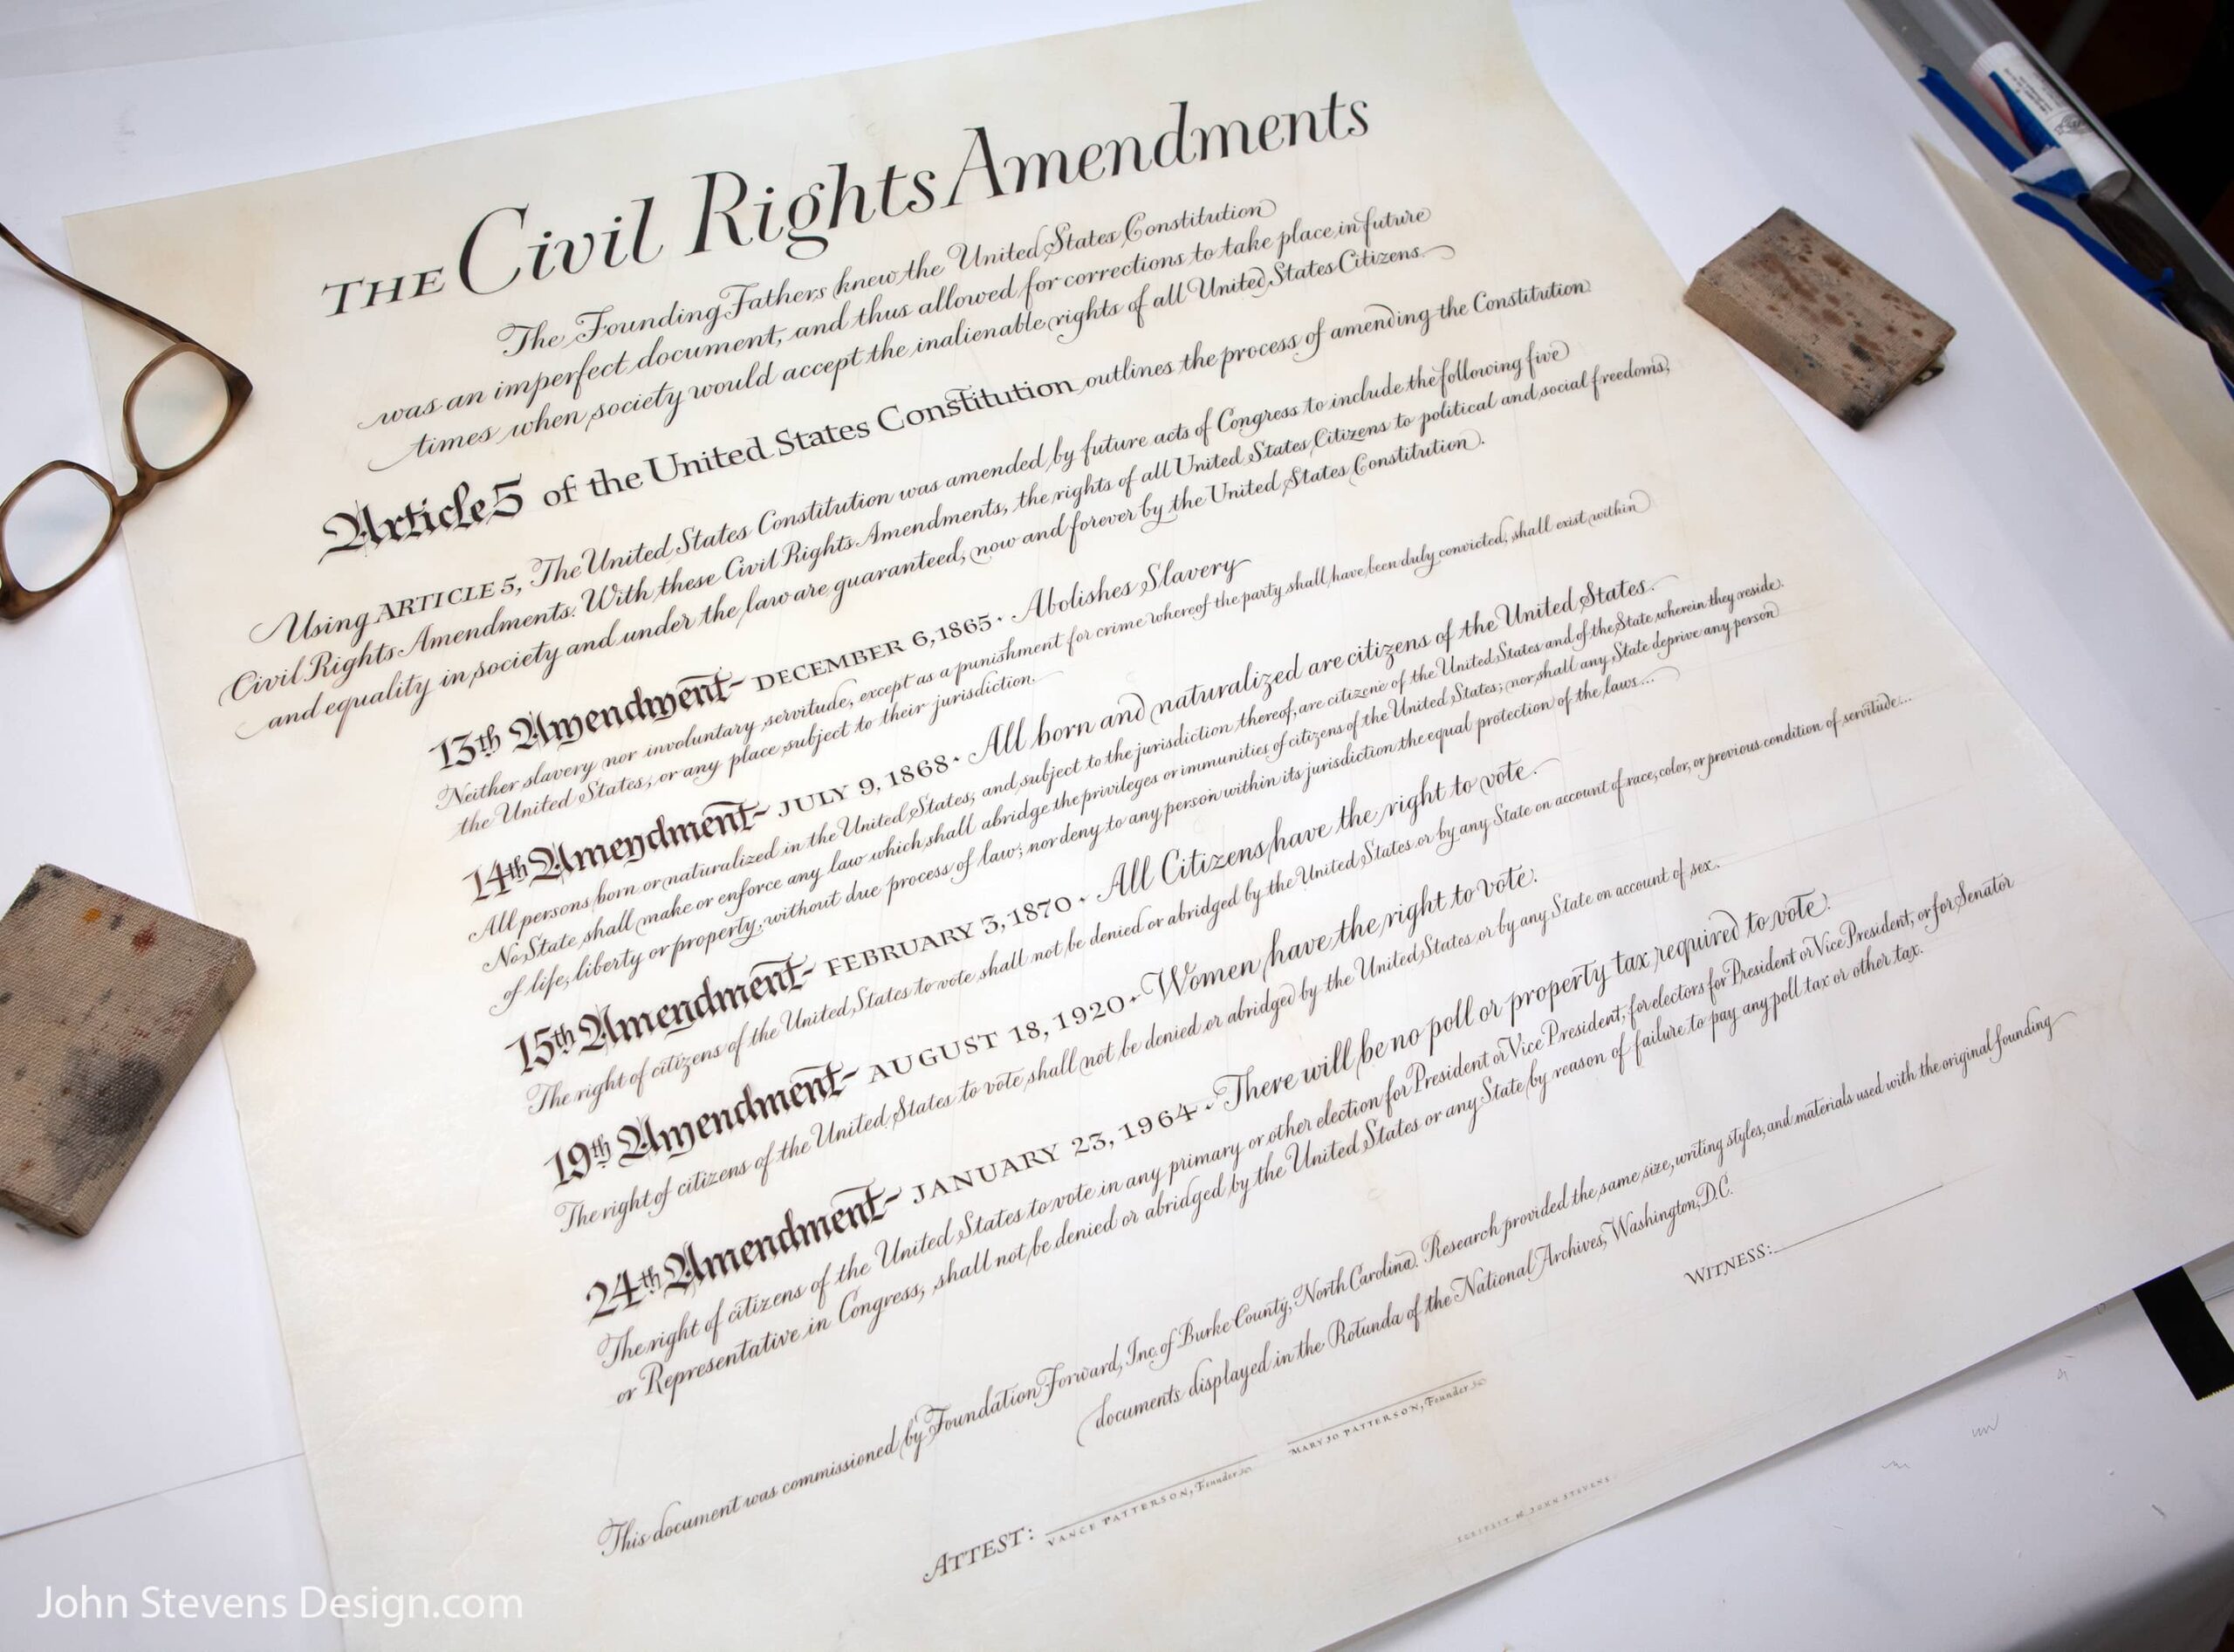 THE Civil Rights Amendments
The Founding Fathers knew the United States Constitution
was an imperfect document, and thus allowed for corrections to take place in future
times when society would accept the inalienable rights of all United States Citizens.
Article 5 of the United States Constitution outlines the process of amending the Constitution.
Using ARTICLE 5, The United States Constitution was amended by future acts of Congress to include the following five
Civil Rights Amendments. With these Civil Rights Amendments, the rights of all United States Citizens to political and social freedoms,
and equality in society and under the law are guaranteed, now and forever by the United States Constitution.
13th Amendment - DECEMBER 6, 1865 · Abolishes Slavery
Neither slavery nor involuntary servitude, except as a punishment for crime whereof the party shall have been duly convicted, shall exist within
the United States, or any place subject to their jurisdiction.
14th Amendment - JULY 9, 1868 · All born and naturalized are citizens of the United States.
All persons born or naturalized in the United States, and subject to the jurisdiction thereof, are citizens of the United States and of the State wherein they reside.
No State shall make or enforce any law which shall abridge the privileges or immunities of citizens of the United States; nor shall any State deprive any person
of life, liberty or property, without due process of law; nor deny to any person within its jurisdiction the equal protection of the laws...
15th Amendment - FEBRUARY 3, 1870 - All Citizens have the right to vote.
The right of citizens of the United States to vote shall not be denied or abridged by the United States or by any State on account of race, color, or previous condition of servitude...
19th Amendment - AUGUST 18, 1920 - Women have the right to vote.
The right of citizens of the United States to vote shall not be denied or abridged by the United States or by any State on account of sex.
24th Amendment - JANUARY 23, 1964 - There will be no poll or property tax required to vote.
The right of citizens of the United States to vote in any primary or other election for President or Vice President, for electors for President or Vice President, or for Senator
or Representative in Congress, shall not be denied or abridged by the United States or any State by reason of failure to pay any poll tax or other tax.
This document was commissioned by Foundation Forward, Inc. of Burke County, North Carolina. Research provided the same size, writing styles, and materials used with the original founding
documents displayed in the Rotunda of the National Archives, Washington, D.C.
WITNESS:
ATTEST:
VANCE PATTERSON, Founder
MARY JO PATTERSON, Founder
JOHN STEVENS
John Stevens Design.com